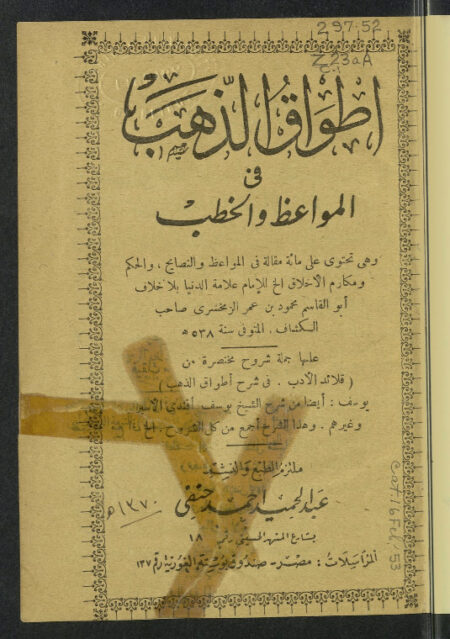 297.52
Z23aA
اطواق الذهب
في
المواعظ والخطب
وهي تحتوى على مائة مقالة في المواعظ والنصايح ، والحكم
ومكارم الأخلاق الخ للإمام علامة الدنيا بلا خلاف
أبو القاسم محمود بن عمر الزمخشرى صاحب
الكشاف . المتوفى سنة ٥٣٨ هـ
عليها جملة شروح مختصرة من
( قلائد الأدب . فى شرح أطواق الذهب )
يوسف : أيضا من شرح الشيخ يوسف أفندى الأسير
وغيرهم . وهذا الشرح أجمع من كل الشروح . الخ
ملتزم الطبع والنشر
عبد الحميد أحمد حنفي
١٣٧٠ هـ
بشارع المشهد الحسينى رقم ١٨
المراسلات : مصر - صندوق بوستة الغورية رقم ١٣٧
Cat. 16 Feb. 53